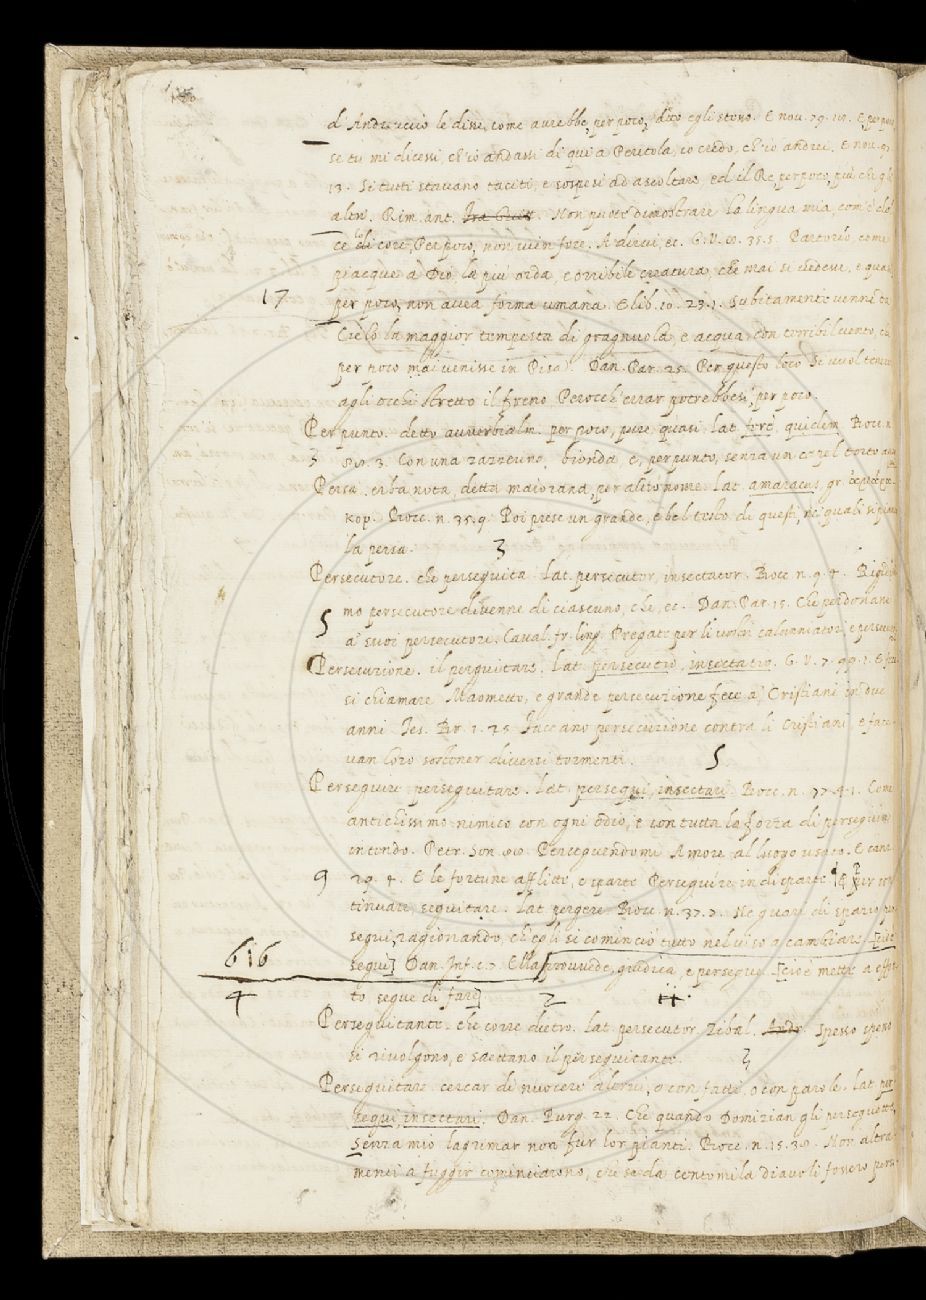 d'Andreuccio le disse, come avrebbe, per poco, detto egli stesso. E nov. 79. E per poco
se tu mi dicessi, ch'io andassi di qui a Peretola, io credo, ch'io andrei. E nov. 97
13. Si tutti stavano taciti, e sospesi ad ascoltare, ed il Re, per poco, più che gli
altri. Rim. ant. Non puote dimostrare la lingua mia, com'è
lo cor, Per poco, non vien fore, A dirvi, ec. G. V. 35. 5. Partorìo, come
piacque a Dio, la più orda, e orribile creatura, che mai si vedesse, e quasi
17 per poco, non avea forma umana. E lib. 10. 23. 1. Subitamente venne da
Cielo la maggior tempesta di gragnuola, e acqua, con terribil vento, che
per poco mai venisse in Pisa. Dan. Par. 25. Per questo loco Si vuol tenere
agli occhi stretto il freno Perocch' errar potrebbesi per poco.
Per punto. detto avverbialm. per poco, pure quasi. Lat. ferè, quidem. Bocc. n.
3 3. Con una zazzerina, bionda, e, per punto, senza un capel torto
Persa. erba nota, detta maiorana, per altro nome. Lat. amaracus, gr.
κον. Bocc. n. 35. 9. Poi prese un grande, e bel testo di questi, ne' quali si pianta
la persa. 3
Persecutore. che perseguita. Lat. persecutor, insectator. Bocc. n. 9. 4.
5 mo persecutore divenne di ciascuno, che, ec. Dan. Par. 15. Che perdonasse
a' suoi persecutori. Caval. fr. ling. Pregate per li vostri calunniatori, e
Persecuzione. il perseguitare. Lat. persecutio, insectatio. G. V. 7.
si chiamare Maometto, e grande persecuzione fece a' Cristiani in due
anni. Tes. Br. 1. 25. Faccano persecuzione contra li Cristiani, e face-
van loro sostener diversi tormenti. 5
Perseguire. perseguitare. Lat. persequi, insectari. Bocc. n. 77. 41. Come
antichissimo nimico con ogni odio, e con tutta la forza di perseguire
intendo. Petr. Son. Perseguendomi Amore al luogo usato. E canz.
9 29. 4. E le fortune afflitte, e sparte Perseguire in disparte ¶ E Per con
tinuare seguitare. Lat. pergere. Bocc. n. 37. 7. Ne guari di spazio per
seguì, ragionando, ch'egli si cominciò tutto nel viso a cambiare. [cioè
616 seguì] Dan. Inf. c. 7. Ella provvede, giudica, e persegue. [cioè mette a effet
4 to segue di fare] 2 ii.
Perseguitante. che corre dietro. Lat. persecutor. Zibal. Andr. Spesso spesso
si rivolgono, e saettano il perseguitante. 3
Perseguitare. cercar di nuocere altrui, o con fatti, o con parole. Lat. per
sequi, insectari. Dan. Purg. 22. Che quando Domizian gli perseguette,
Senza mio lagrimar non fur lor pianti. Bocc. n. 15. 30. Non altra
menti a fuggir cominciarono, che se da centomila diavoli fossero perse